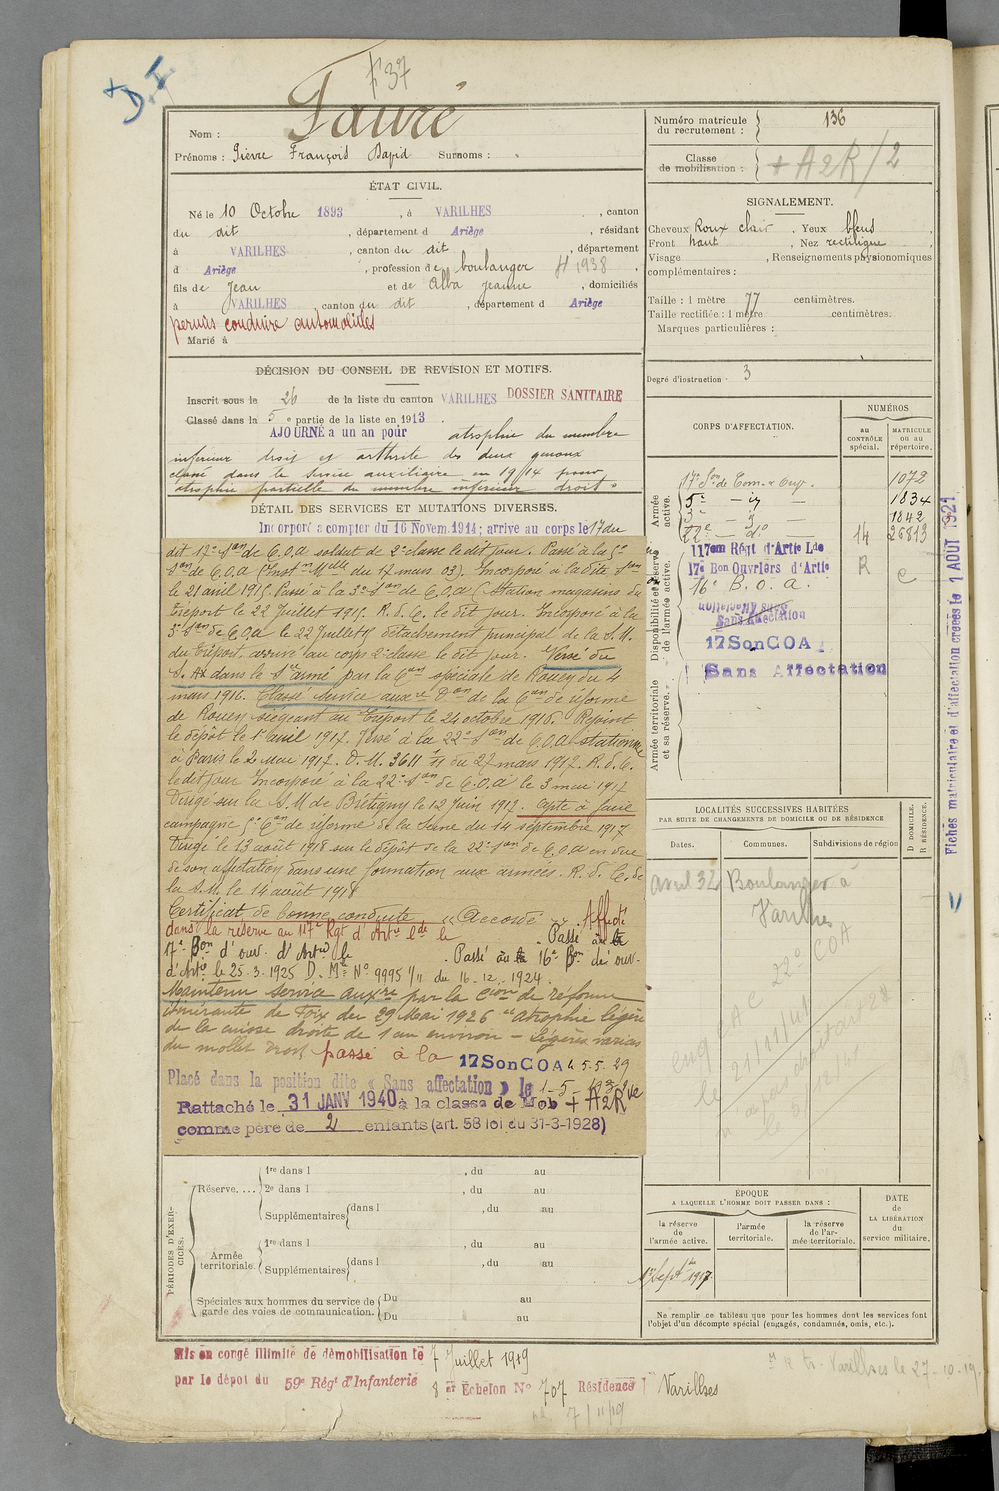 + D.F
F 37
Nom : Fauré
Prénoms : Pierre François David Surnoms : .
ÉTAT CIVIL.
Né le 10 Octobre 1893, à VARILHES, canton
du dit, département d Ariège, résidant
à VARILHES, canton du dit, département
d Ariège, profession de boulanger H 1938
fils de Jean et de Alba Jeanne, domiciliés
à VARILHES, canton du dit, département d Ariège
permis conduire automobiles
Marié à
DÉCISION DU CONSEIL DE REVISION ET MOTIFS.
Inscrit sous le 26 de la liste du canton VARILHES DOSSIER SANITAIRE
Classé dans la 5e partie de la liste en 1913.
AJOURNÉ a un an pour atrophie du membre
inférieur droit et arthrite des deux genoux
classé dans le service auxiliaire en 1914 pour
atrophie partielle du membre inférieur droit.
DÉTAIL DES SERVICES ET MUTATIONS DIVERSES.
Incorporé à compter du 16 Novem. 1914; arrivé au corps le 17 du
dit 17e Son de C.O.A soldat de 2e classe le dit jour. Passé à la 5e
Son de C.O.A (Instn Melle du 17 mars 03). Incorporé à la dite Son
le 21 avril 1915. Passé à la 3e Son de C.O.A (Station magasin du
Tréport le 22 Juillet 1915. R. d. C. le dit jour. Incorporé à la
3e Son de C.O.A le 22 Juillet détachement principal de la S.M.
du Tréport, arrivé au corps 2e classe le dit jour. Versé du
S. Ax dans le Sce armé par la Con spéciale de Rouen du 4
mars 1916. Classé service auxre Don de la Con de réforme
de Rouen siégeant au Tréport le 24 octobre 1916. Rejoint
le dépôt le 1er avril 1917. Versé à la 22e Son de C.O.A stationnée
à Paris le 2 Mai 1917. D.M. 3611 du 27 mars 1917. R. d. C.
le dit jour Incorporé à la 22e Son de C.O.A le 3 mai 1917
Dirigé sur la S.M de Brétigny le 12 Juin 1917. Apte à faire
campagne 5e Con de réforme de la Seine du 14 septembre 1917
Dirigé le 13 août 1918 sur le dépôt de la 22e Son de C.O.A en vue
de son affectation dans une formation aux armées. R. d. C. de
la S.M. le 14 août 1918
Certificat de bonne conduite " Accordé " Affecté
dans la réserve au 117e Rgt d'Artie lde le . Passé au
17e Bon d'ouv. d'Artie le Passé au 16e Bon de ouv.
d'Artie le 25.3.1925 D. Mle No 9995 1/11 du 16.12.1924.
Maintenu Service auxre par la Cion de réforme
itinérante de Foix du 29 Mai 1926 "atrophie légère
de la cuisse droite de 1 cm environ - légères varices
du mollet droit passé à la 17SonCOA le 5.5.29
Placé dans la position dite « Sans affectation » le 1-5-1932
Rattaché le 31 JANV 1940 à la classe de Mob + A2R
comme père de 2 enfants (art. 58 loi du 31-3-1928)
PÉRIODES D'EXERCICES.
Réserve.... 1re dans l , du au
2e dans l , du au
Supplémentaires dans l , du au
Armée territoriale. 1re dans l , du au
Supplémentaires dans l , du au
Spéciales aux hommes du service de garde des voies de communication. Du au
Du au
Mis en congé illimité de démobilisation le 7 Juillet 1919
par le dépôt du 59e Régt d'Infanterie 8 er Echelon No 707 Résidence Varilhes
7/11/19
Varilhes le 27-10-19
Numéro matricule du recrutement : 136
Classe de mobilisation : + A2R/2
SIGNALEMENT.
Cheveux Roux clair. Yeux bleus,
Front haut, Nez rectiligne,
Visage , Renseignements physionomiques
complémentaires :
Taille : 1 mètre 77 centimètres.
Taille rectifiée : 1 mètre centimètres.
Marques particulières :
Degré d'instruction - 3
CORPS D'AFFECTATION.
NUMÉROS
au CONTRÔLE spécial.
MATRICULE ou au répertoire.
Armée active.
17e Son de Com. & Ouv. 1072
5e - id - 1834
3e - id - 1842
22e - do 14 26813
Disponibilité et réserve de l'armée active.
117em Régt d'Artie Lde R
17e Bon Ouvriers d'Artie C
16e B.O.A.
Sans Affectation
Sans Affectation
17SonCOA
Sans Affectation
Armée territoriale et sa réserve.
Fiches matriculaire et d'affectation créées le 1 AOUT 1921
LOCALITÉS SUCCESSIVES HABITÉES
PAR SUITE DE CHANGEMENTS DE DOMICILE OU DE RÉSIDENCE
Dates. Communes. Subdivisions de région
D DOMICILE. R RÉSIDENCE.
Avril 32 Boulanger à
Varilhes
22e COA
le 21/11/41
ÉPOQUE
A LAQUELLE L'HOMME DOIT PASSER DANS :
la réserve de l'armée active.
l'armée territoriale.
la réserve de l'armée territoriale.
DATE de LA LIBÉRATION du service militaire.
1er Septbre 1917
Ne remplir ce tableau que pour les hommes dont les services font
l'objet d'un décompte spécial (engagés, condamnés, omis, etc.).